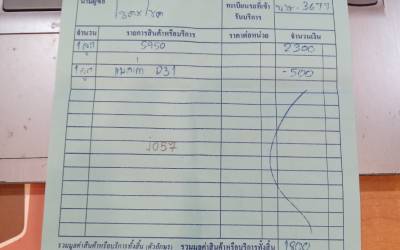 นามผู้ซื้อ
ทะเบียนรถที่เข้า
รับบริการ
นาง-3677
จำนวน รายการสินค้าหรือบริการ ราคาต่อหน่วย จำนวนเงิน
1 ลูก 5950 2300
1 ลูก D31 -500
j057
รวมมูลค่าสินค้าหรือบริการทั้งสิ้น (ตัวอักษร) รวมมูลค่าสินค้าหรือบริการทั้งสิ้น 1800